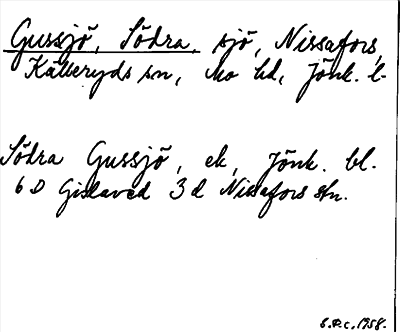 Gussjö, Södra, sjö, Nissafors,
Källeryds sn, Mo hd, Jönk. l.
Södra Gussjö, ek, Jönk. bl.
6 D Gislaved 3 d Nissafors stn.
S.P.c. 1958.